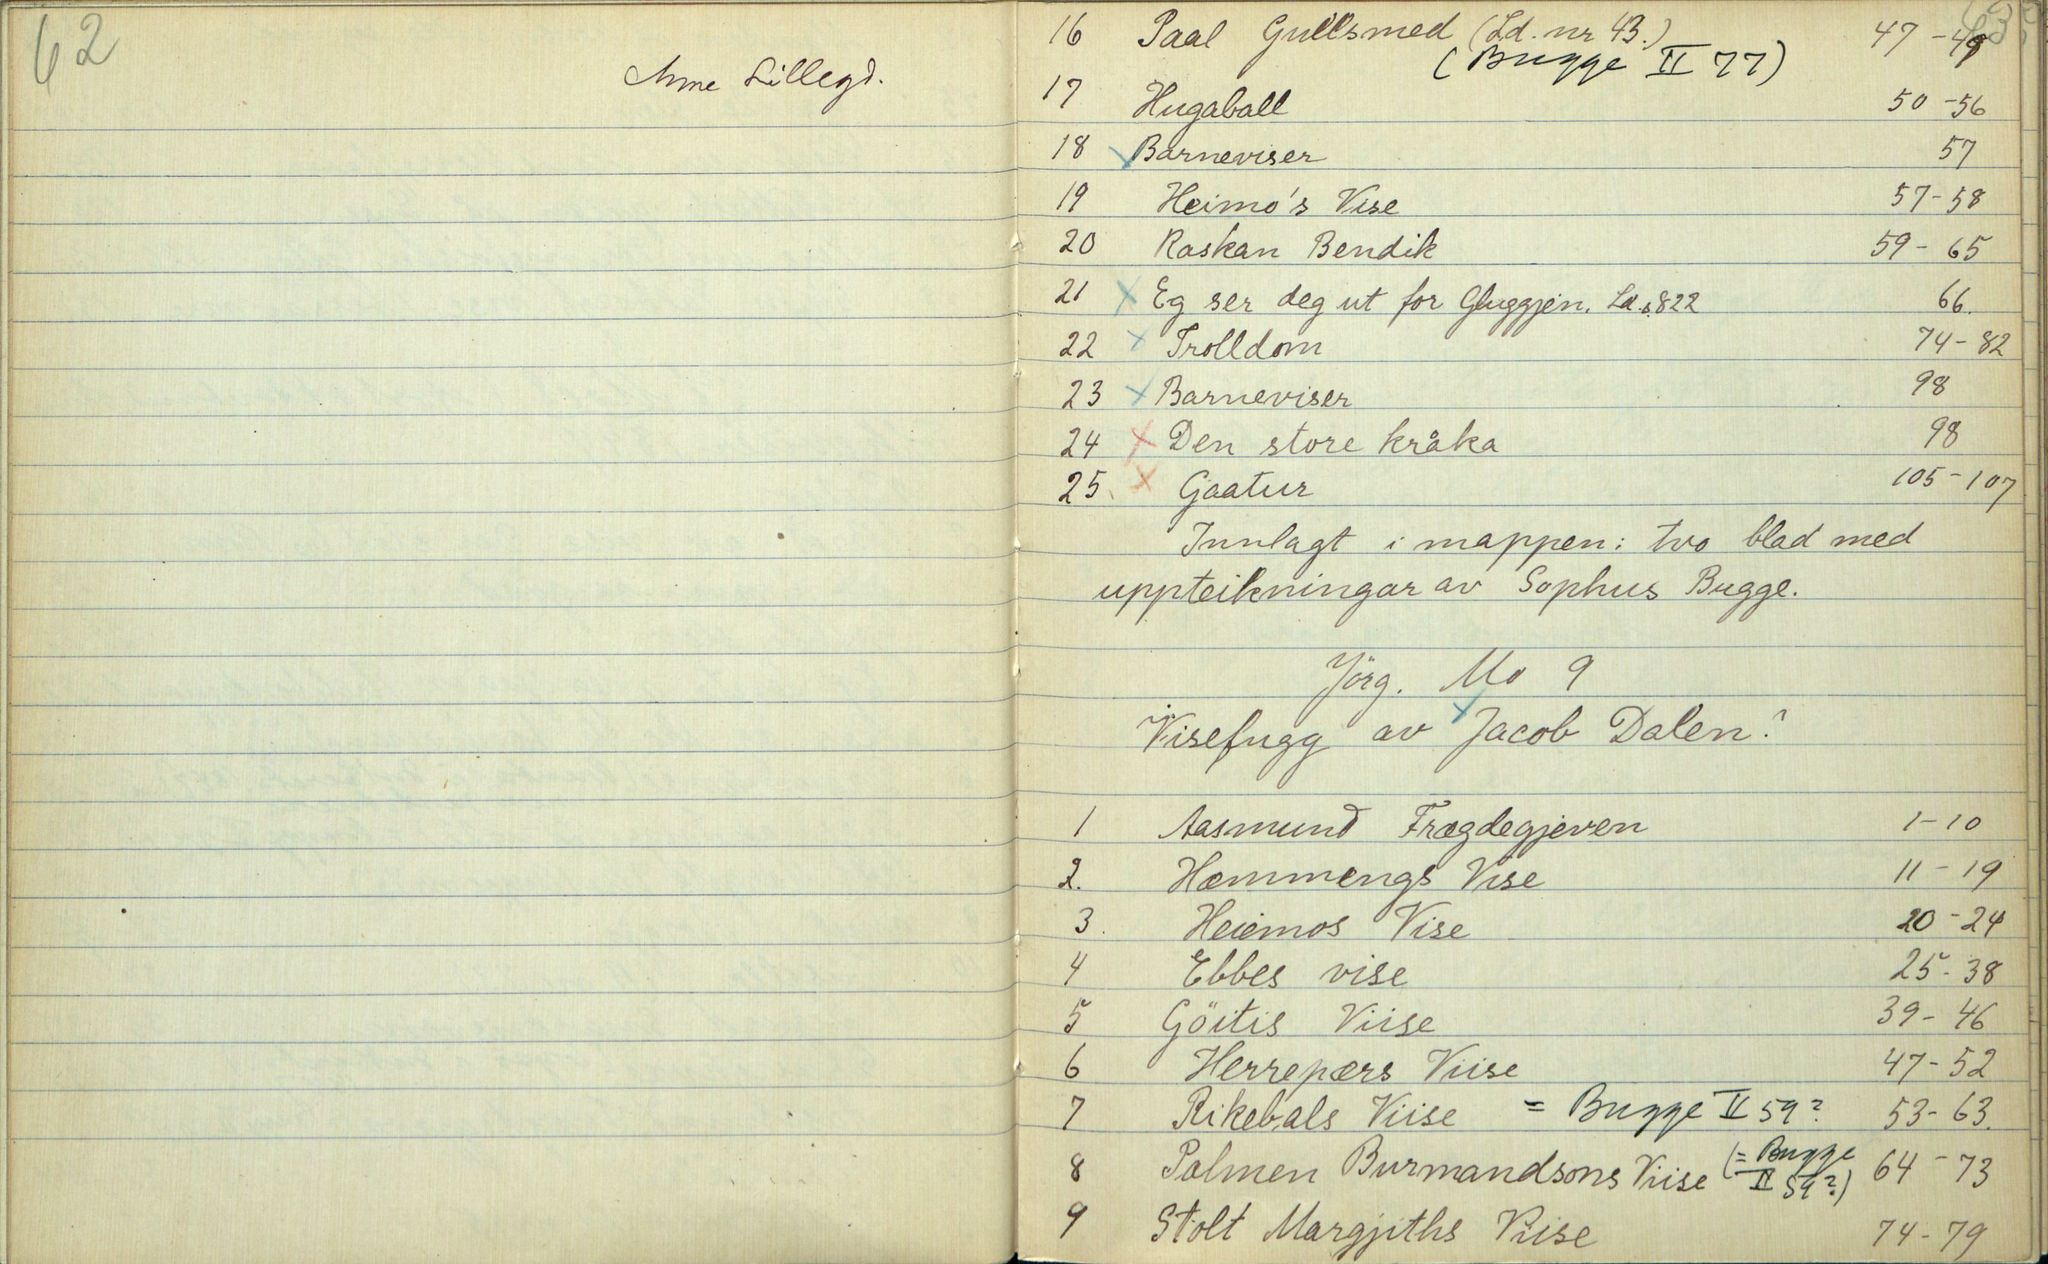 62
Anne Lillegd.
63
16 Paal Gullsmed (Ld. nr 43.) 47-49
(Bugge II 77)
17 Hugaball 50-56
18 x Barneviser 57
19 Heimo's Vise 57-58
20 Raskan Bendik 59-65
21 x Eg ser deg ut for Gluggjen. Ld. s. 822 66.
22 x Trolldom 74-82
23 x Barneviser 98
24 x Den store kråka 98
25. x Gaatur 105-107
Innlagt i mappen: tvo blad med
uppteikningar av Sophus Bugge.
Jörg. Mo 9
Visefugg av x Jacob Dalen?
1 Aasmund Frægdegjeven 1-10
2. Hemmengs Vise 11-19
3. Heiemos Vise 20-24
4 Ebbes vise 25-38
5 Göitis Viise 39-46
6 Herrepærs Viise 47-52
7 Rikebals Viise = Bugge II 59? 53-63.
8 Palmen Burmandsons Viise (= Bugge 64-73
II 59?)
9 Stolt Margjiths Viise 74-79